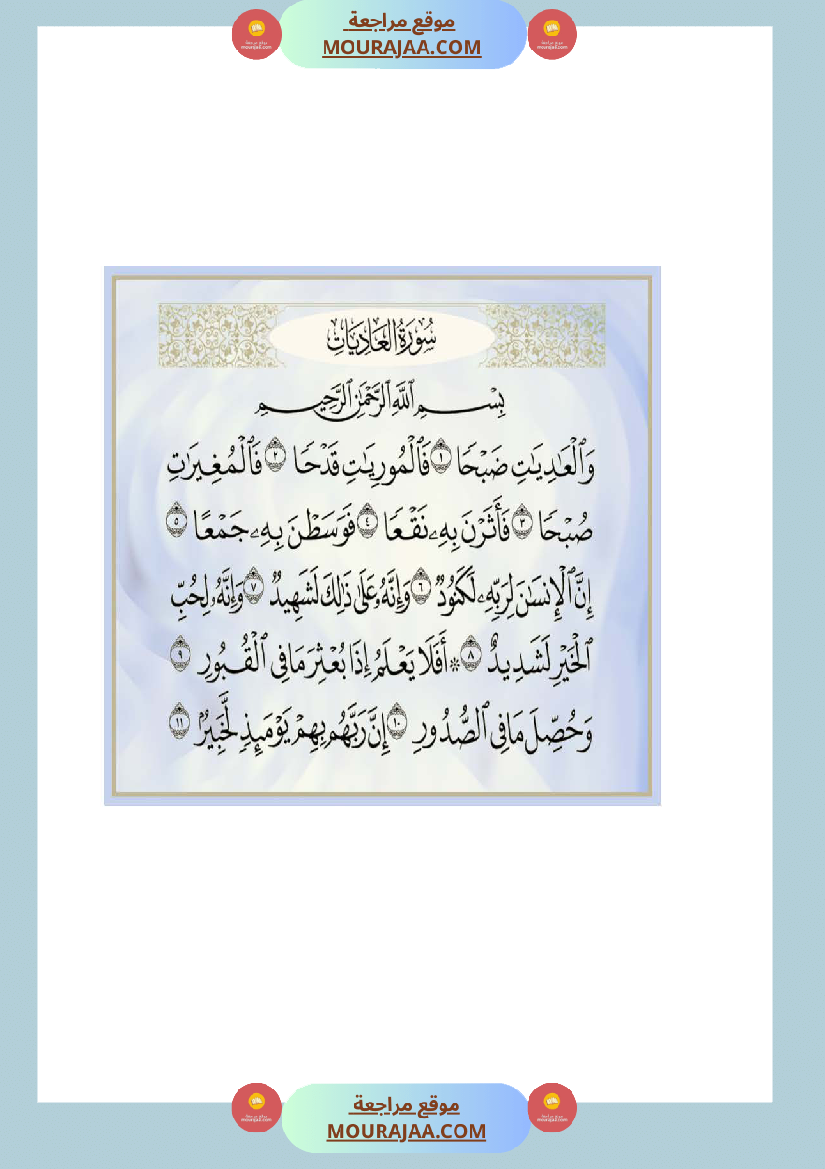 موقع مراجعة
MOURAJAA.COM
سُورَةُ العَادِيَاتِ
بِسْمِ ٱللَّهِ ٱلرَّحْمَٰنِ ٱلرَّحِيمِ
وَٱلْعَٰدِيَٰتِ ضَبْحًا ١ فَٱلْمُورِيَٰتِ قَدْحًا ٢ فَٱلْمُغِيرَٰتِ
صُبْحًا ٣ فَأَثَرْنَ بِهِۦ نَقْعًا ٤ فَوَسَطْنَ بِهِۦ جَمْعًا ٥
إِنَّ ٱلْإِنسَٰنَ لِرَبِّهِۦ لَكَنُودٌ ٦ وَإِنَّهُۥ عَلَىٰ ذَٰلِكَ لَشَهِيدٌ ٧ وَإِنَّهُۥ لِحُبِّ
ٱلْخَيْرِ لَشَدِيدٌ ٨ ۞ أَفَلَا يَعْلَمُ إِذَا بُعْثِرَ مَا فِي ٱلْقُبُورِ ٩
وَحُصِّلَ مَا فِي ٱلصُّدُورِ ١٠ إِنَّ رَبَّهُم بِهِمْ يَوْمَئِذٍ لَّخَبِيرٌۢ ١١
موقع مراجعة
MOURAJAA.COM